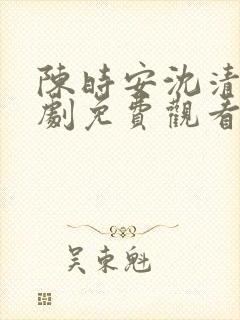 陳時安沈清
劇免費觀看
吴東魁